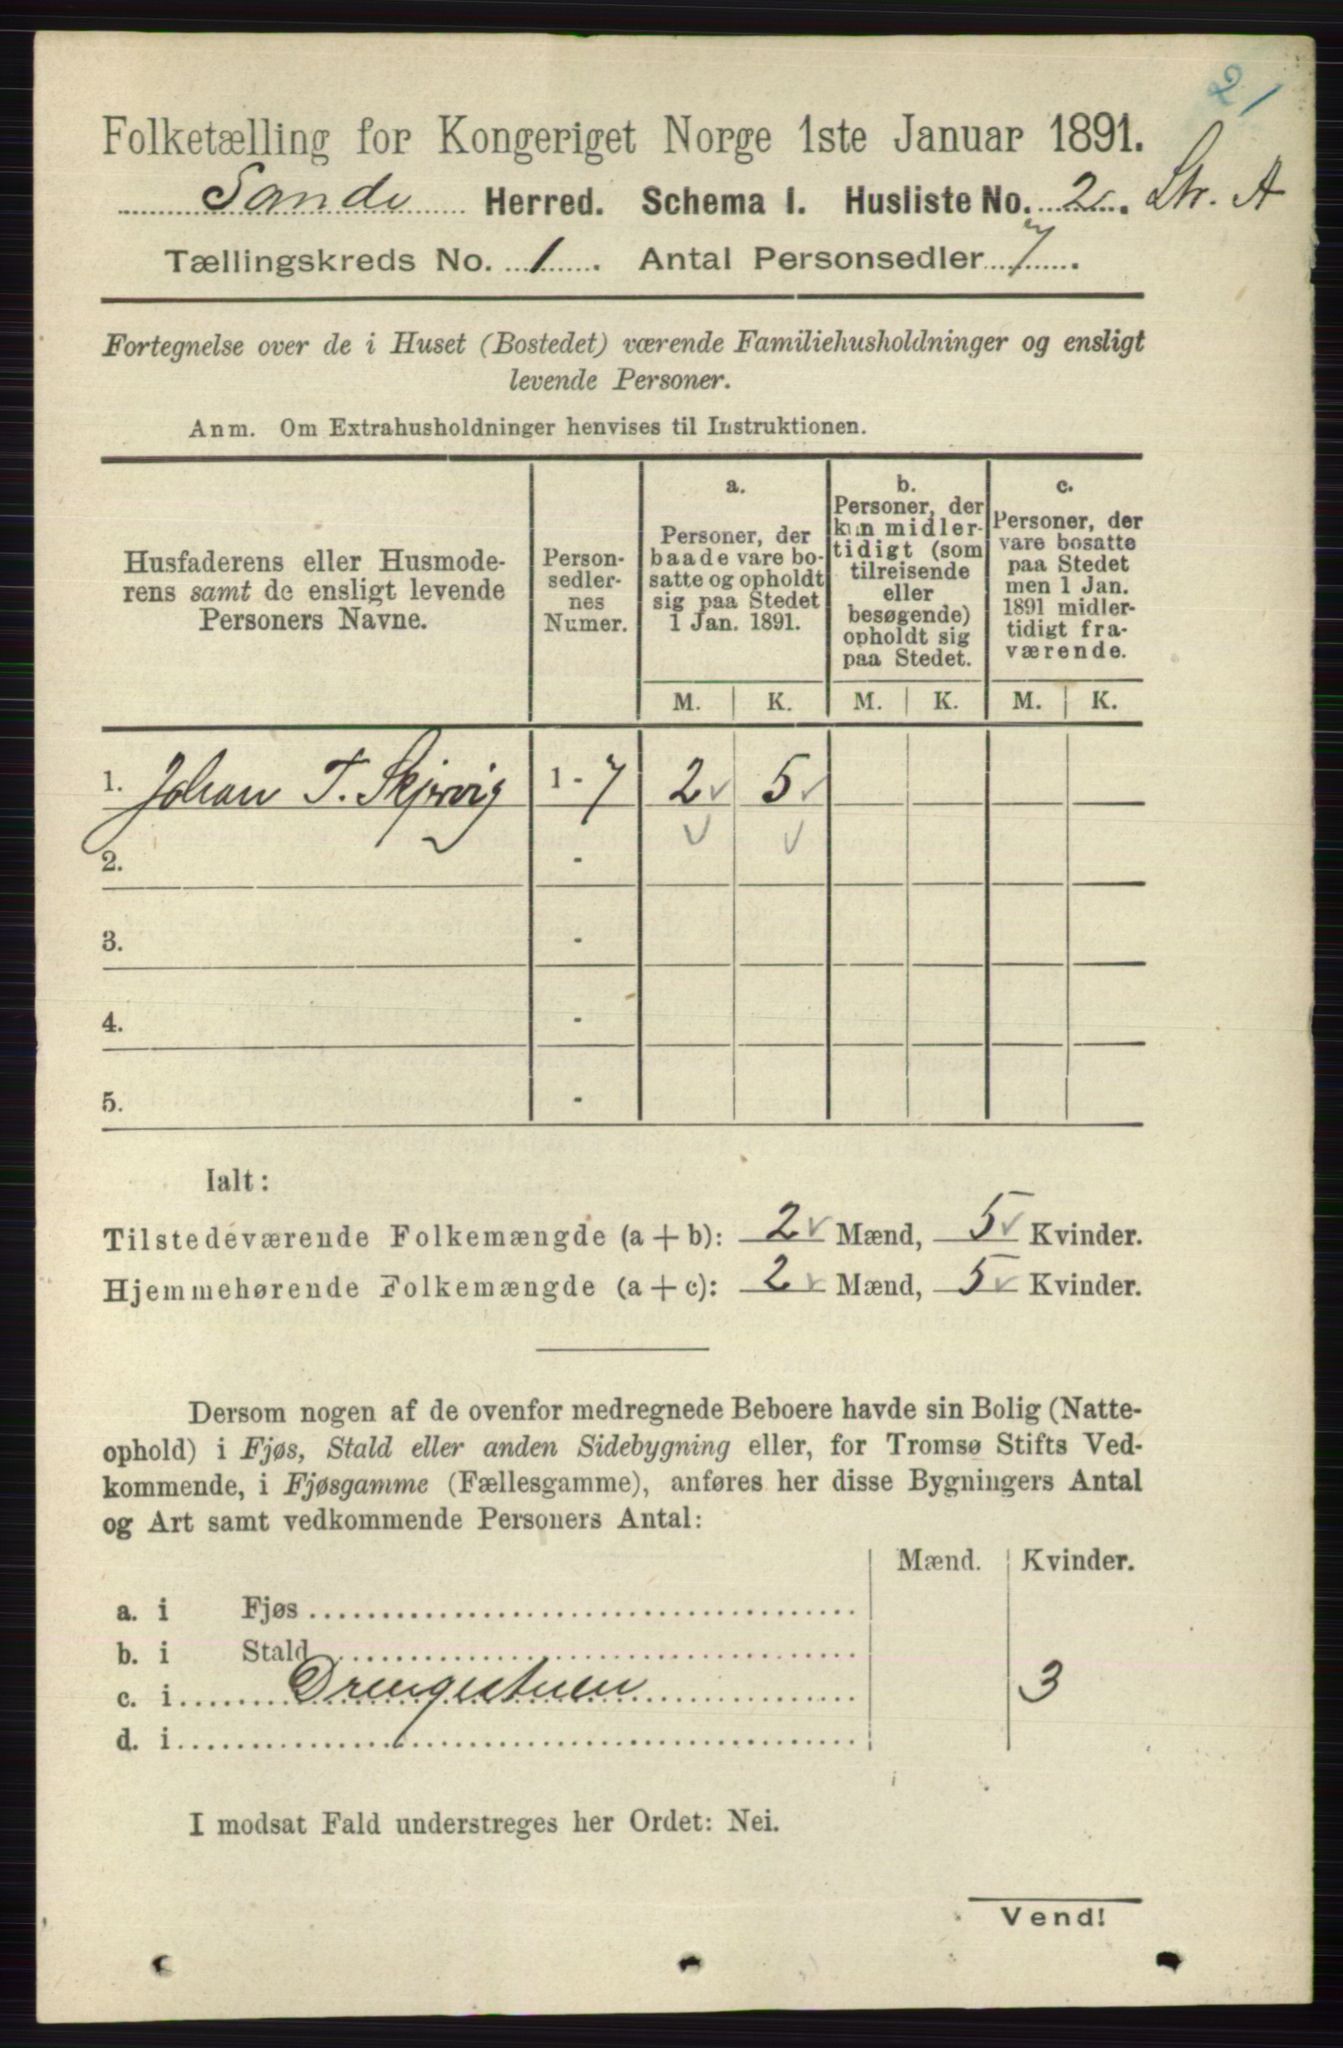 21
Folketælling for Kongeriget Norge 1ste Januar 1891.
Sande Herred. Schema I. Husliste No. 2. Str. A
Tællingskreds No. 1. Antal Personsedler 7.
Fortegnelse over de i Huset (Bostedet) værende Familiehusholdninger og ensligt
levende Personer.
Anm. Om Extrahusholdninger henvises til Instruktionen.
Husfaderens eller Husmode-
rens samt de ensligt levende
Personers Navne.
Person-
sedler-
nes
Numer.
a.
Personer, der
baade vare bo-
satte og opholdt
sig paa Stedet
1 Jan. 1891.
b.
Personer, der
kun midler-
tidigt (som
tilreisende
eller
besøgende)
opholdt sig
paa Stedet.
c.
Personer, der
vare bosatte
paa Stedet
men 1 Jan.
1891 midler-
tidigt fra-
værende.
M. K. M. K. M. K.
1. Johan T. Skjervig 1-7 2 ✓ 5 ✓
✓ ✓
2. -
3. -
4. -
5. -
Ialt:
Tilstedeværende Folkemængde (a + b): 2 ✓ Mænd, 5 ✓ Kvinder.
Hjemmehørende Folkemængde (a + c): 2 ✓ Mænd, 5 ✓ Kvinder.
Dersom nogen af de ovenfor medregnede Beboere havde sin Bolig (Natte-
ophold) i Fjøs, Stald eller anden Sidebygning eller, for Tromsø Stifts Ved-
kommende, i Fjøsgamme (Fællesgamme), anføres her disse Bygningers Antal
og Art samt vedkommende Personers Antal:
Mænd. Kvinder.
a. i Fjøs
b. i Stald
c. i Drengestuen 3
d. i
I modsat Fald understreges her Ordet: Nei.
Vend!